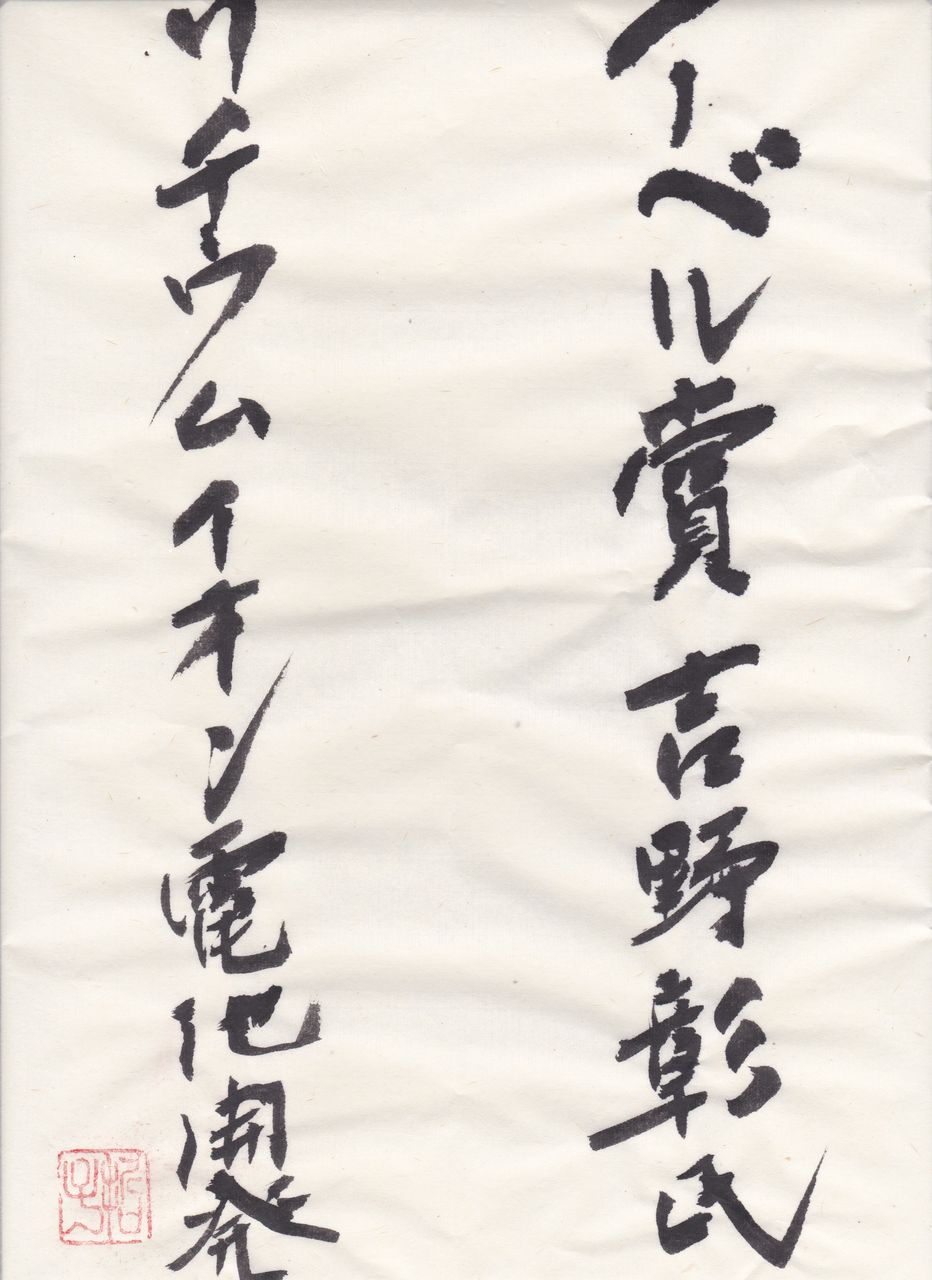 ノーベル賞 吉野彰氏
リチウムイオン電池開発